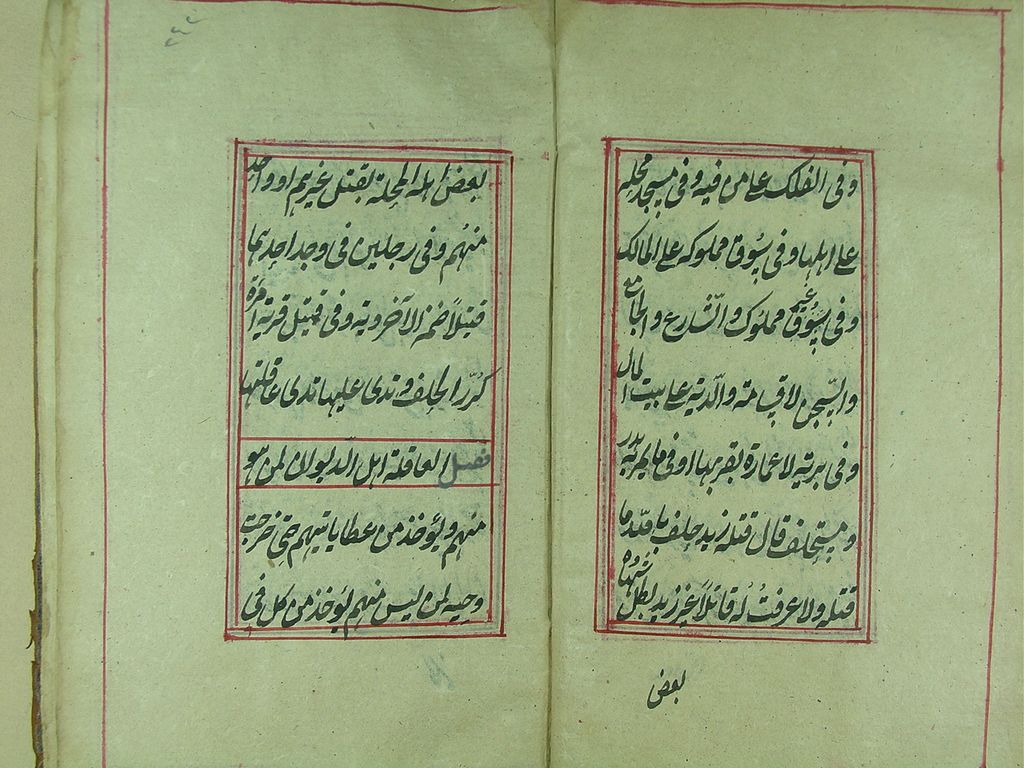 وفى الفلك على من فيه وفى مسجد محلة
على اهلها وفى سوق مملوكة على المالك
وفى سوق غير مملوك والشارع والجامع
والسجن لا قسامة والدية على بيت المال
وفى برية لا عمارة بقربها او فى ماء يمر به هدر
ومستحلف قال قتله زيد حلف بالله ما
قتله ولا عرفت له قاتلاً غير زيد بطل شهادة
بعض
بعض اهل المحلة بقتل غيرهم او واحد
منهم وفى رجلين فى وجد احدهما
قتيلاً ضمن الآخر ديته وفى قتيل قرية امرءة
كُرّر الحلف وتدى عليها تدى عاقلتها
فصل العاقلة اهل الديوان لمن هو
منهم ويؤخذ من عطاياتهم متى خرجت
وحيه لمن ليس منهم يؤخذ من كل فى